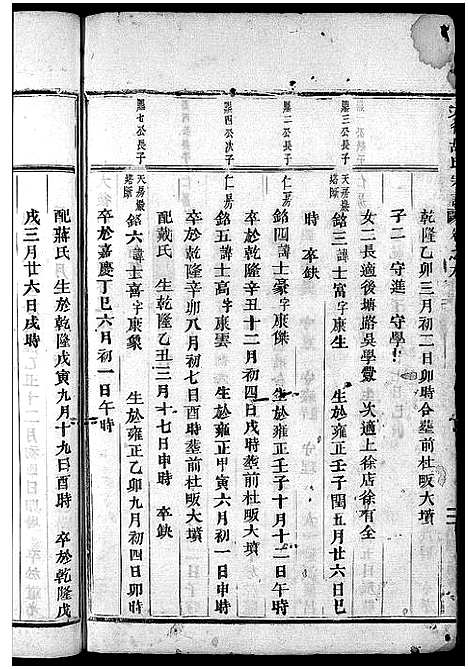 乾隆乙卯三月初二日卯時合塟前杜畈大墳
子二　守進　守學
女二長適後塘路吳學豐　次適上徐店徐有全
熙三公長子
天房嚴塔師
銘三諱士富字康生　生於雍正壬子閏五月廿六日巳
時　卒缺
熙二公長子
仁房
銘四諱士立字康傑　生於雍正壬子十月十二日午時
卒於乾隆辛丑十二月初四日戌時塟前杜畈大墳
熙四公次子
仁房
銘五諱士高字康雲　生於雍正甲寅六月初一日午時
卒於乾隆辛卯八月初七日酉時塟前杜畈大墳
配戴氏　生乾隆乙丑三月十七日申時　卒缺
熙七公長子
天房嚴塔師
銘六諱士喜字康象　生於雍正乙卯九月初四日卯時
卒於嘉慶丁巳六月初一日午時
配蔣氏　生於乾隆戊寅九月十九日酉時　卒於乾隆戊
戌三月廿六日戌時